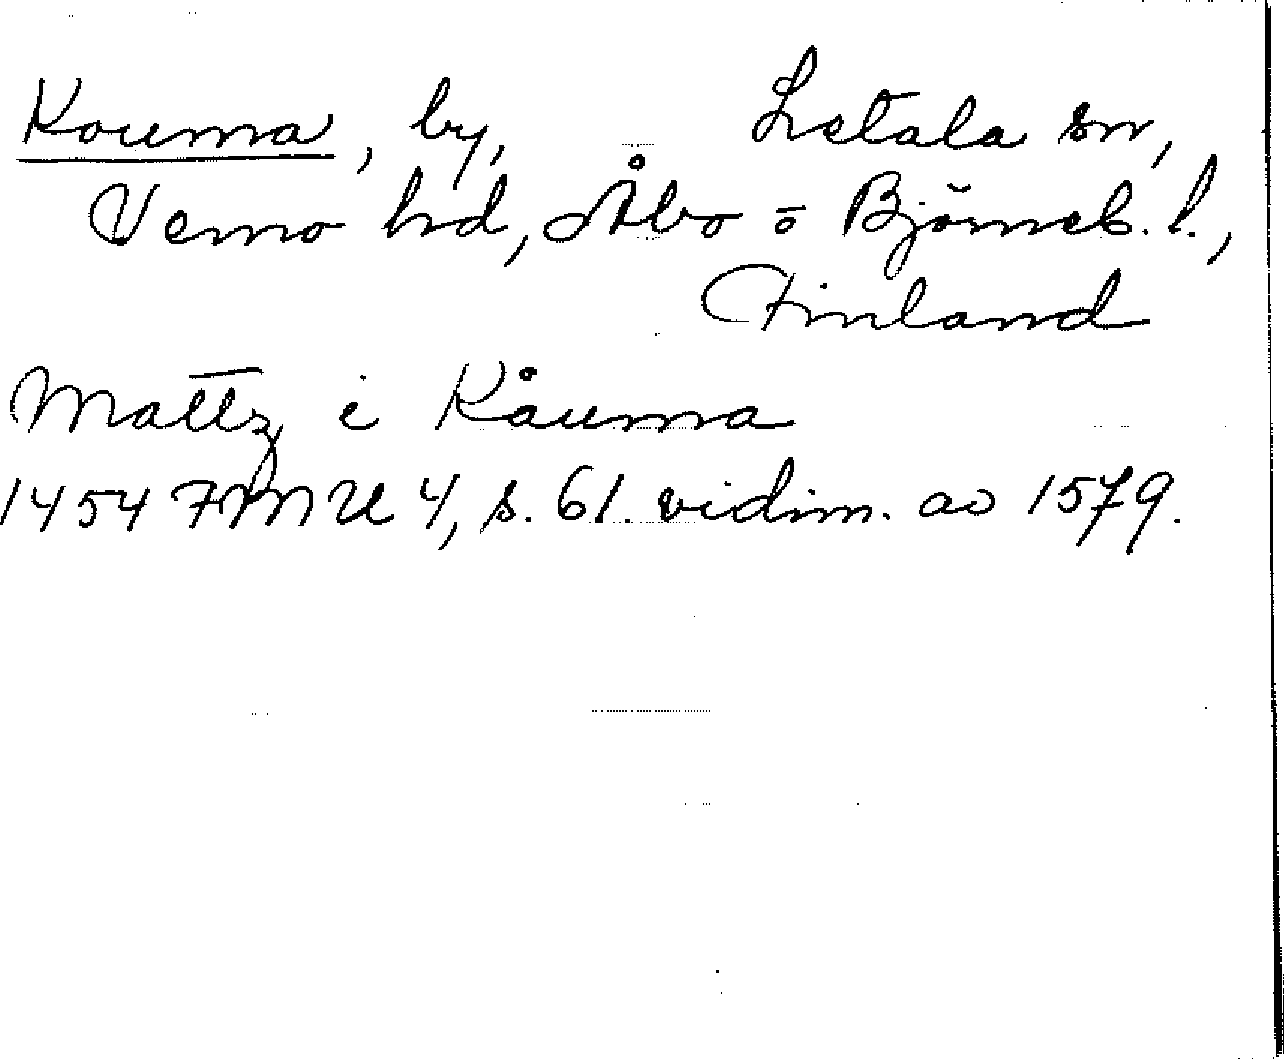 Kouma, by, Letala sn,
Vemo hd, Åbo o Björneb. l.,
Finland
Mattz i Kåuma
1454 FMU 4, s. 61. vidim. ao 1579.